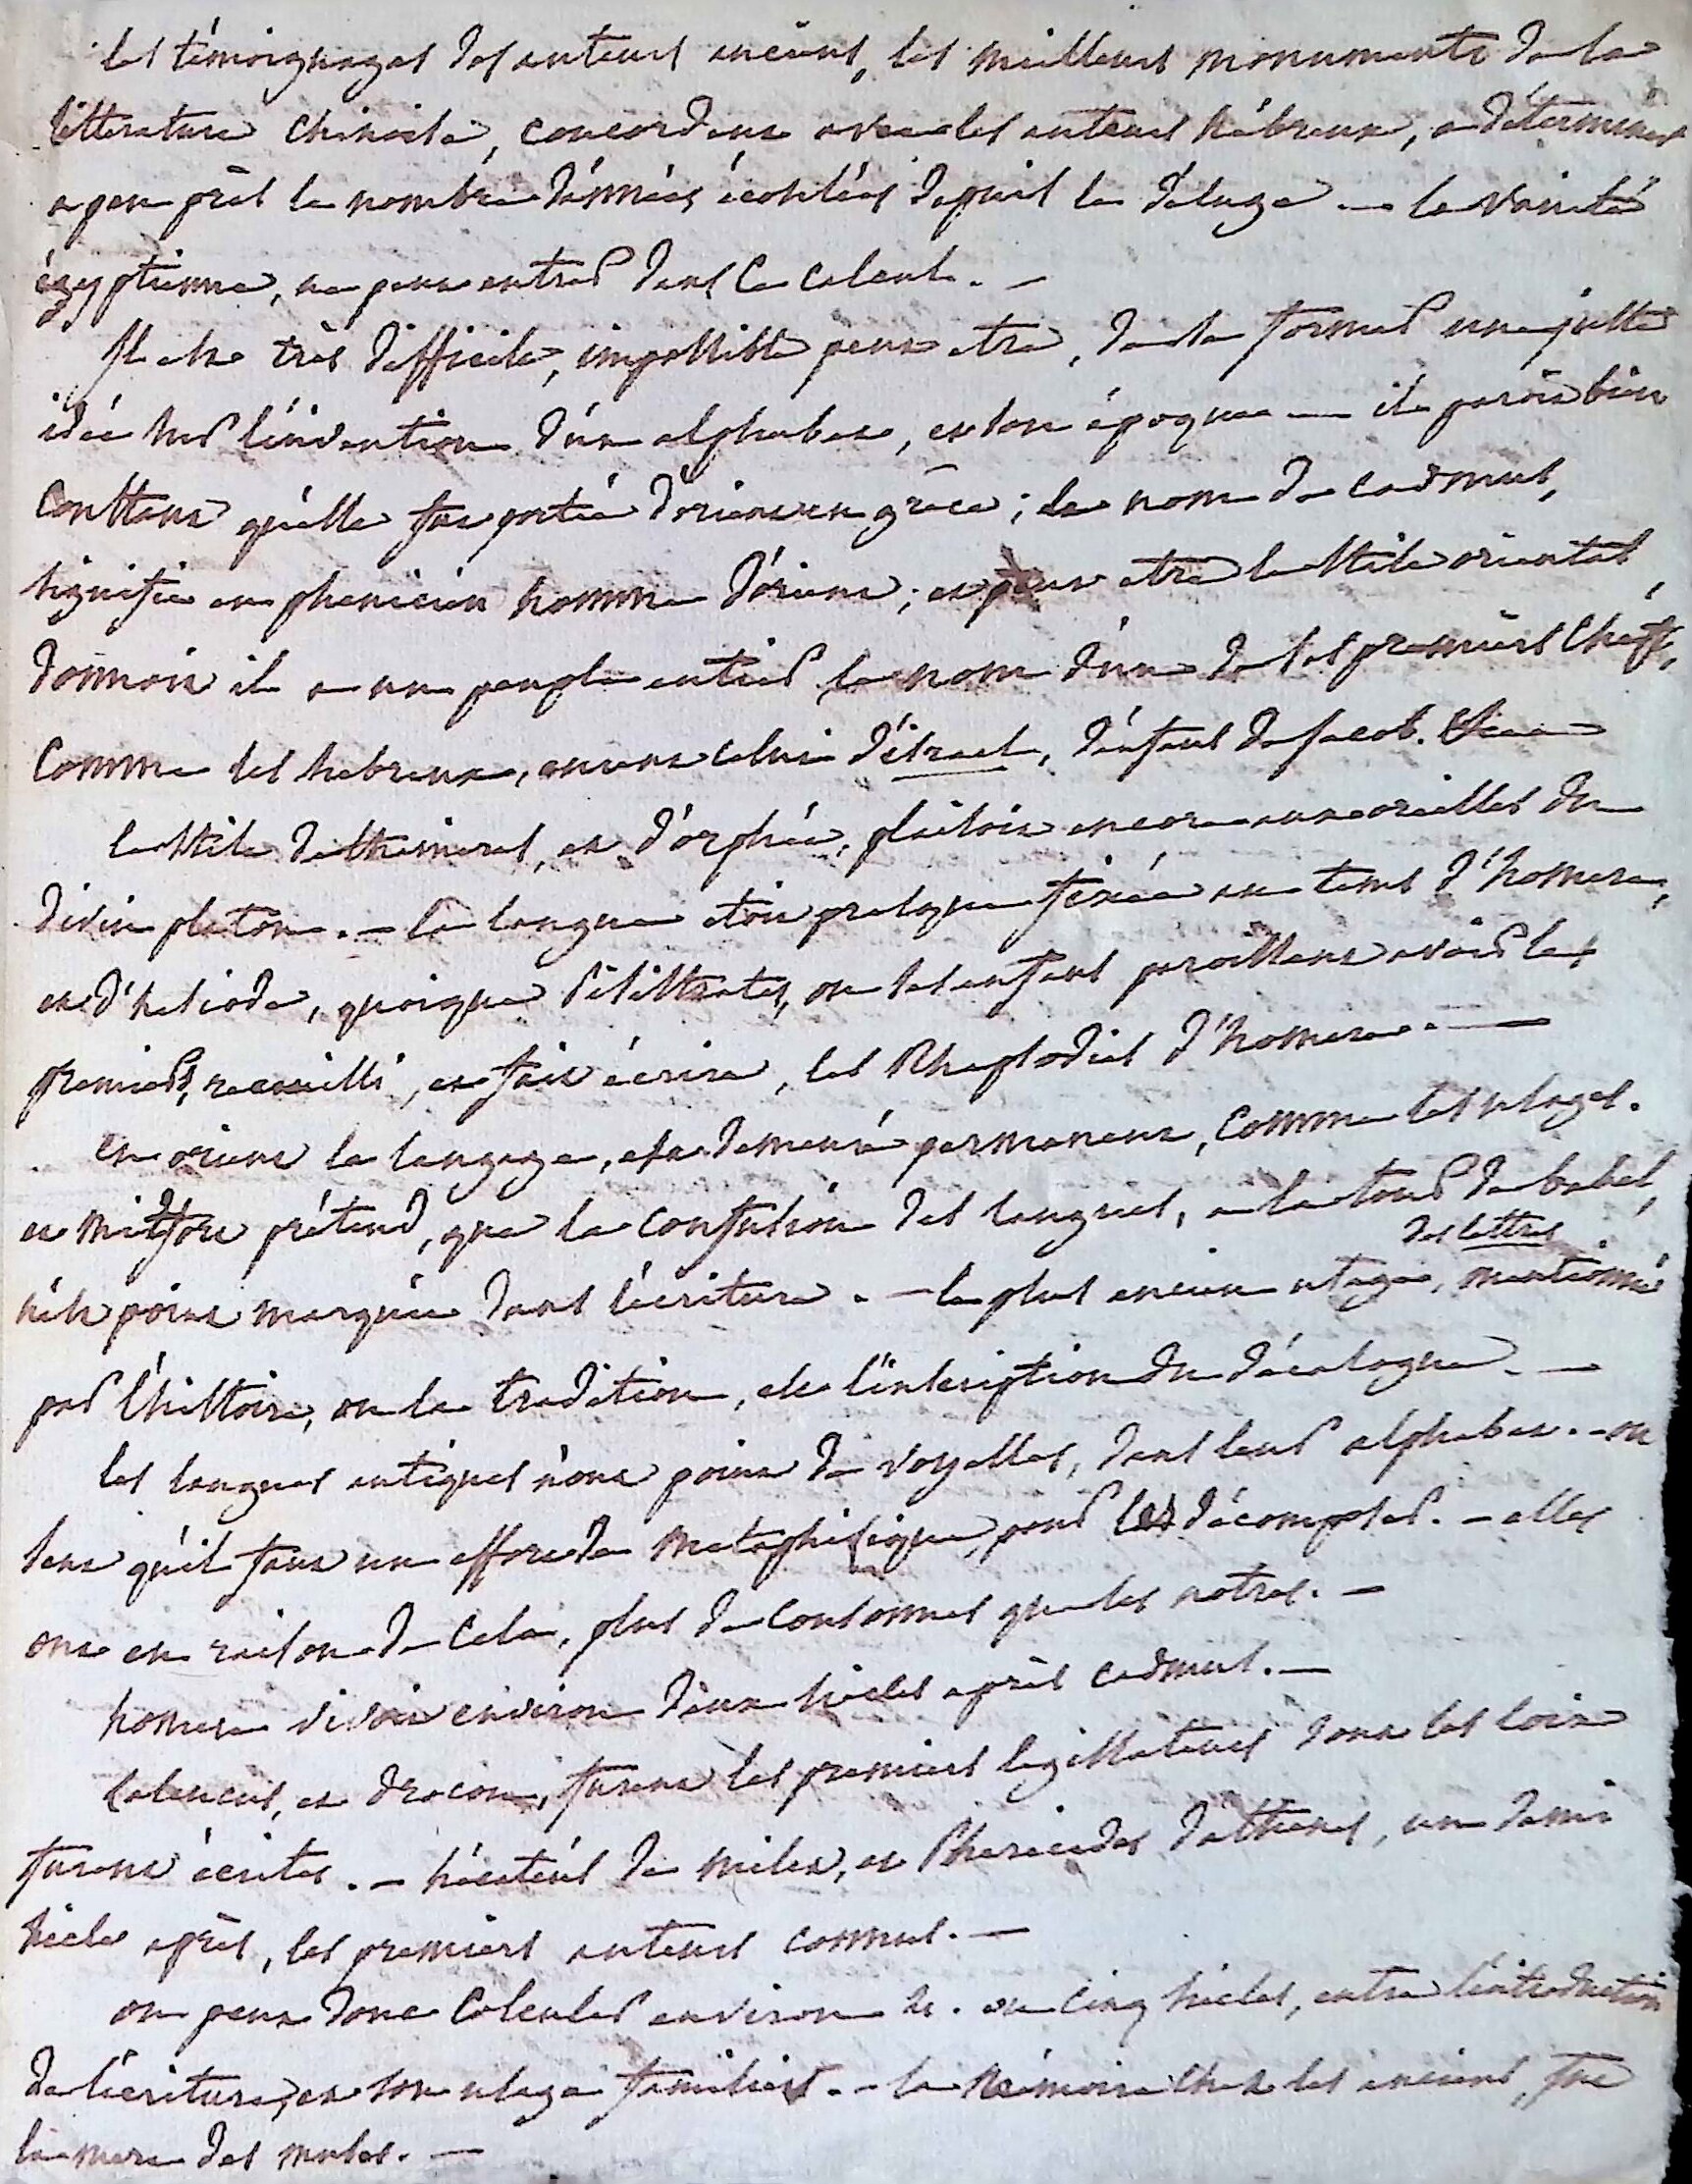 les témoignages des auteurs anciens, les meilleurs monuments de la
litterature chinoise, concordent avec les auteurs hébreux, a déterminer
a peu près le nombre d'années écoulées depuis le déluge. — la vanité
égyptienne, ne peut entrer dans ce calcul. —
Il est très difficile, impossible peut etre, de se former une juste
idée sur l'invention d'un alphabet, et son époque — il paroit bien
constant qu'elle fut portée d'orient en grèce ; le nom de cadmus,
signifie en phenicien homme d'orient ; et peut etre le stile oriental,
donnoit il a un peuple entier le nom d'un de ses premiers chefs,
comme les hebreux, eurent celui d'israel, d'enfans de jacob.
le stile de thamires, et d'orphée, plaisoit encore aux oreilles du
divin platon. — la langue étoit presque fixée au tems d'homere,
et d'hesiode, quoique Pisistrate, ou ses enfans paroissent avoir les
premiers, recueilli, et fait écrire, les Rhapsodies d'homere. —
en orient le langage, est demeuré permanent, comme les usages.
et mitford prétend, que la confusion des langues, a la tour de babel,
n'est point marquée dans l'écriture. — le plus ancien usage, des lettres mentionné
par l'histoire, ou la tradition, est l'inscription du décalogue. —
les langues antiques n'ont point de voyelles, dans leur alphabet. — on
sent qu'il faut un effort de metaphisique, pour les décomposer. — elles
ont en raison de cela, plus de consonnes que les notres. —
homere vivoit environ deux siecles après cadmus. —
Zaleucus, et dracon, furent les premiers legislateurs dont les loix
furent écrites. — hécatéus de milet, et Pherecides d'athenes, un demi
siecle après, les premiers auteurs connus. —
on peut donc calculer environ 4. ou cinq siecles, entre l'introduction
de l'écriture, et son usage familier. — la mémoire chez les anciens, fut
la mere des muses. —